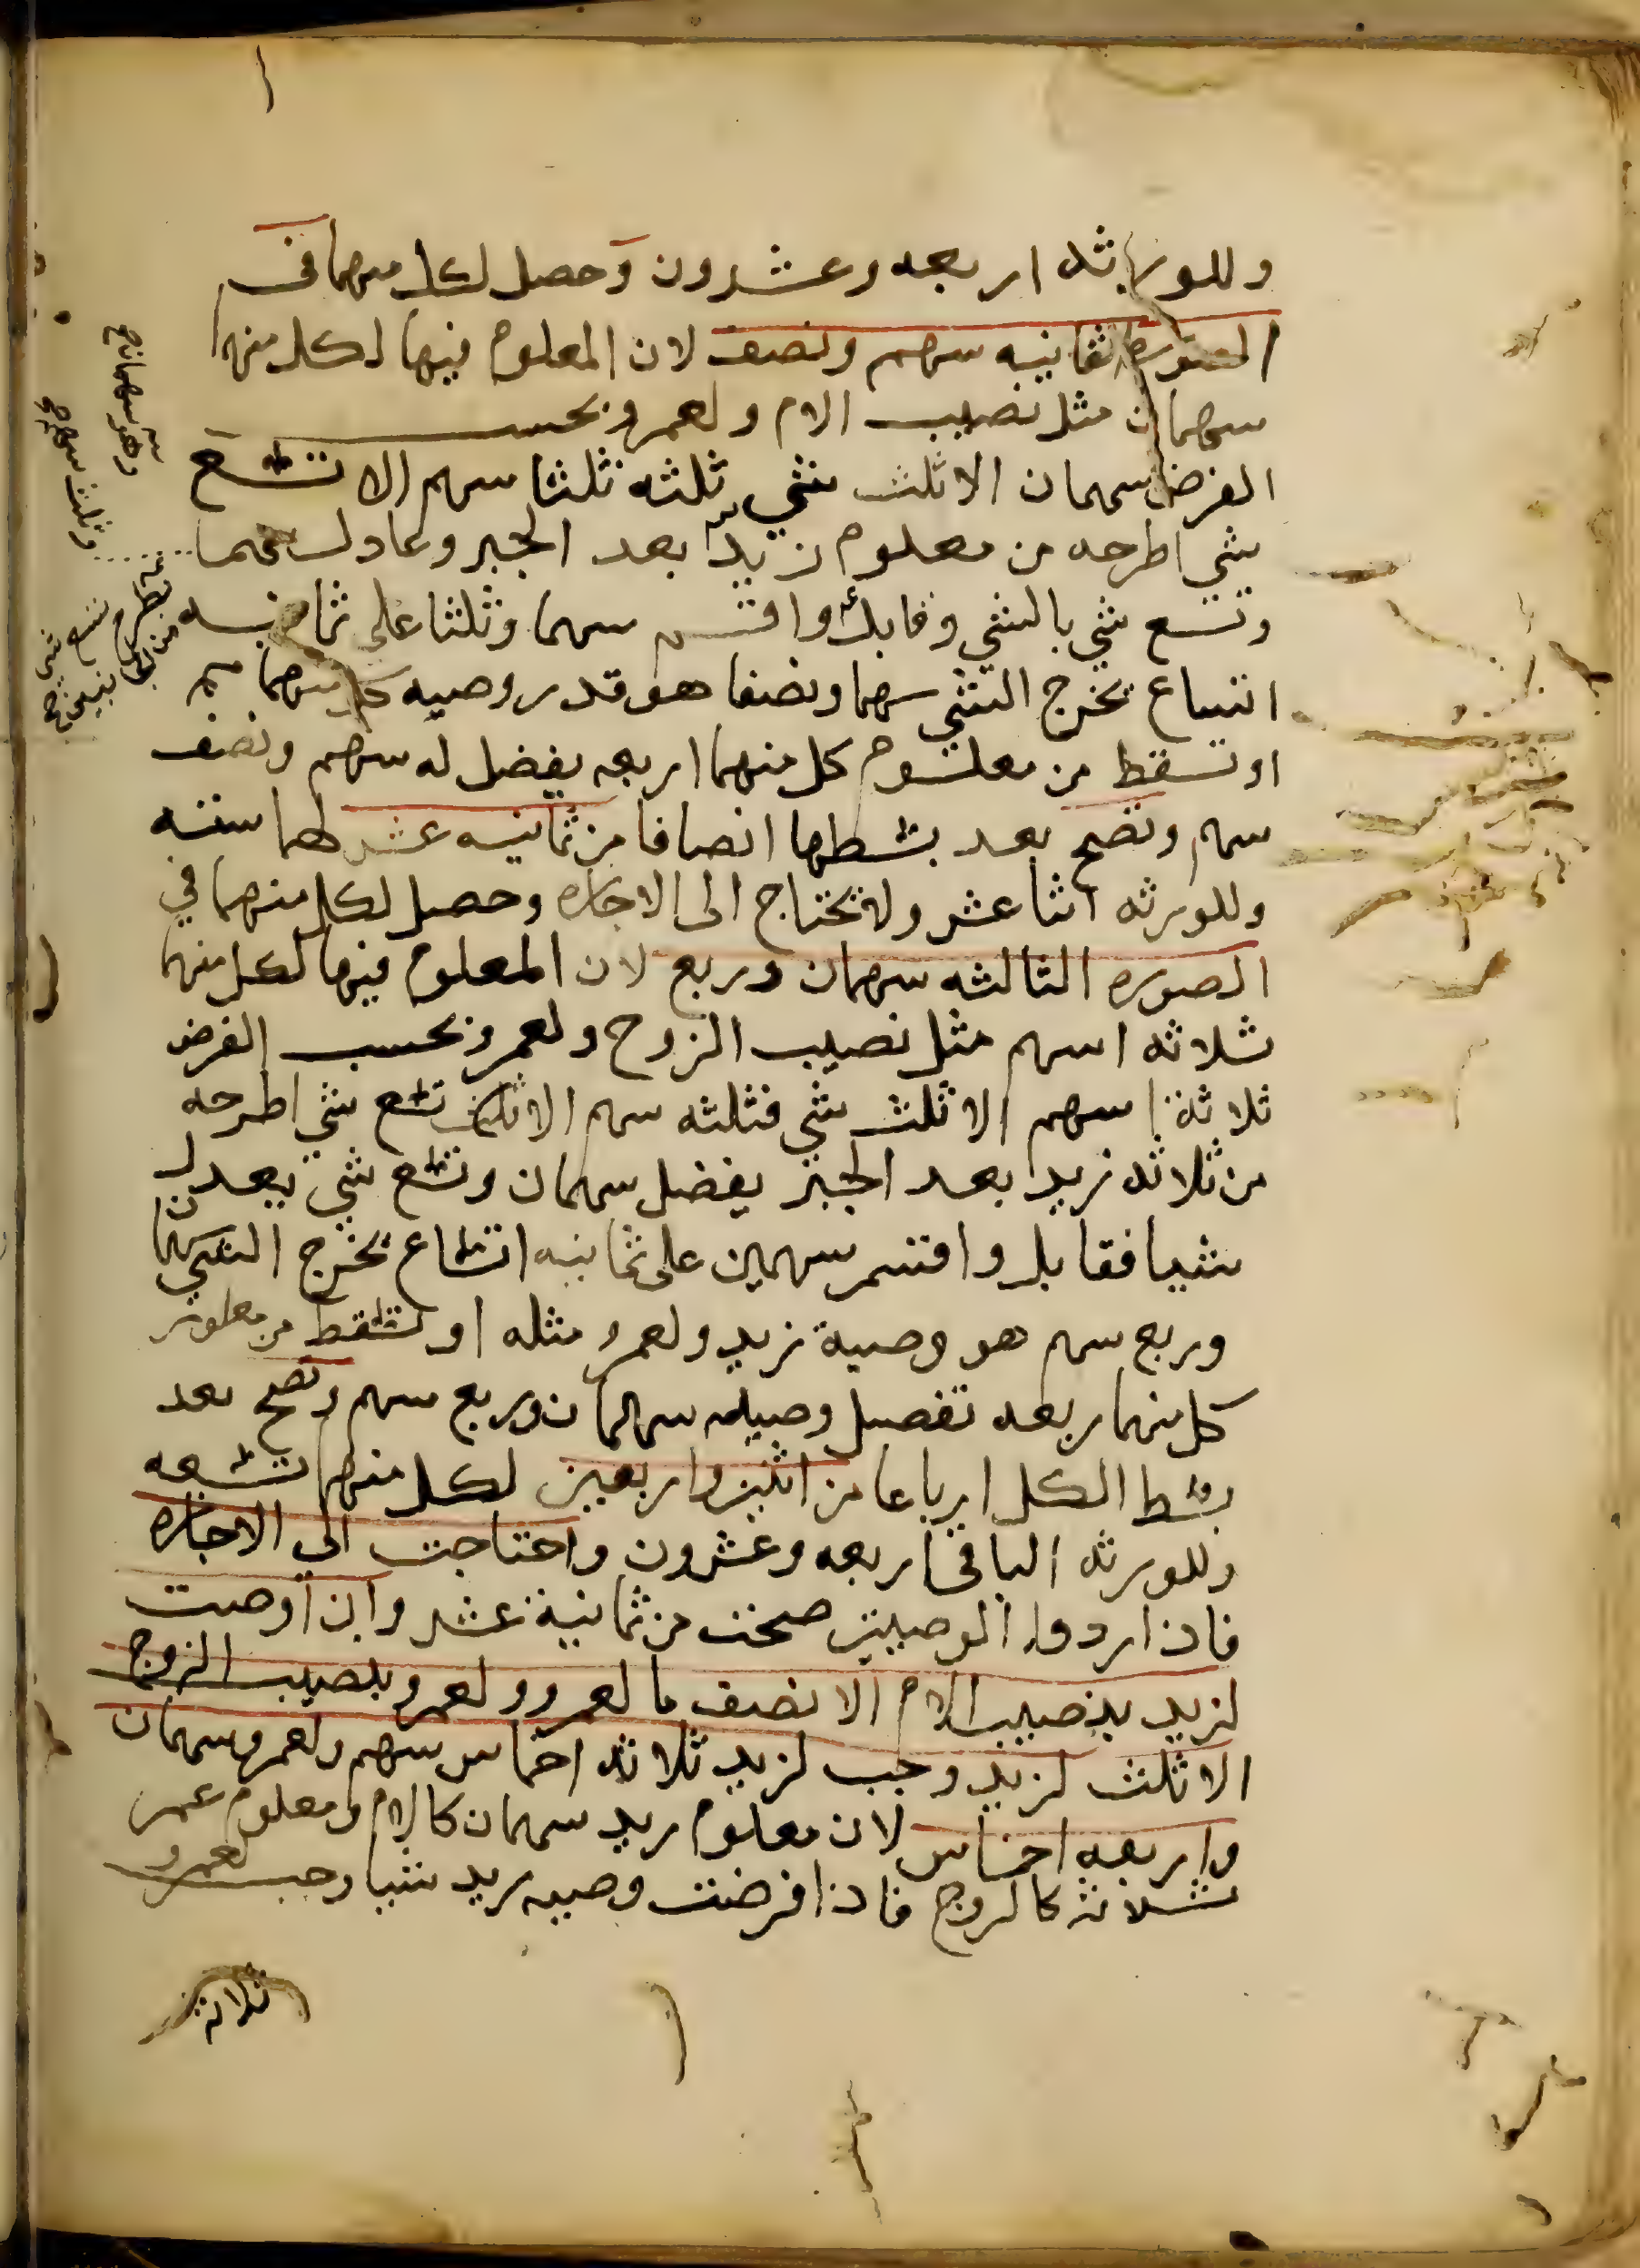 وللورثه اربعه وعشرون وحصل لكل منهما في
الصوره الثانيه سهم ونصف لان المعلوم فيها لكل منهما
سهمان مثل نصيب الام ولعمرو بحسب
الفرض سهمان الا ثلث شي ثلثه ثلثا سهم الا تسع
شي اطرحه من معلوم زيد بعد الجبر وعادل سهما
وتسع شي بالشي وقابل واقسم سهما وثلثا على ثمانيه
اتساع يخرج الشي سهما ونصفا هو قدر وصيه كل منهما
او تسقط من معلوم كل منهما اربعه يفضل له سهم ونصف
سهم وتصح بعد بسطها انصافا من ثمانيه عشر لهما سته
وللورثه اثنا عشر ولا تحتاج الى الاجازه وحصل لكل منهما في
الصوره الثالثه سهمان وربع لان المعلوم فيها لكل منهما
ثلاثه اسهم مثل نصيب الزوج ولعمرو بحسب الفرض
ثلاثة اسهم الا ثلث شي فثلثه سهم الا تسع شي اطرحه
من ثلاثه زيد بعد الجبر يفضل سهمان وتسع شي يعدلن
شيا فقابل واقسم سهمين على ثمانيه اتساع يخرج الشي سهمان
وربع سهم هو وصية زيد ولعمرو مثله او تسقط من معلوم
كل منهما ربعه تفضل وصيته سهمان وربع سهم وتصح بعد
بسط الكل ارباعا من اثنين واربعين لكل منهما تسعه
وللورثه الباقي اربعه وعشرون واحتاجت الي الاجازه
فاذا ردوا الوصيتين صحت من ثمانية عشر وان اوصت
لزيد بنصيب الام الا نصف ما لعمرو ولعمرو بنصيب الزوج
الا ثلث لزيد وجب لزيد ثلاثه اخماس سهم ولعمرو سهمان
واربعه اخماس لان معلوم زيد سهمان كالام ومعلوم عمرو
ثلاثه كالزوج فاذا فرضت وصيه زيد شيا وجب لعمرو
ثلاثه
وهو سهمان
وثلث سهم
تسع شي